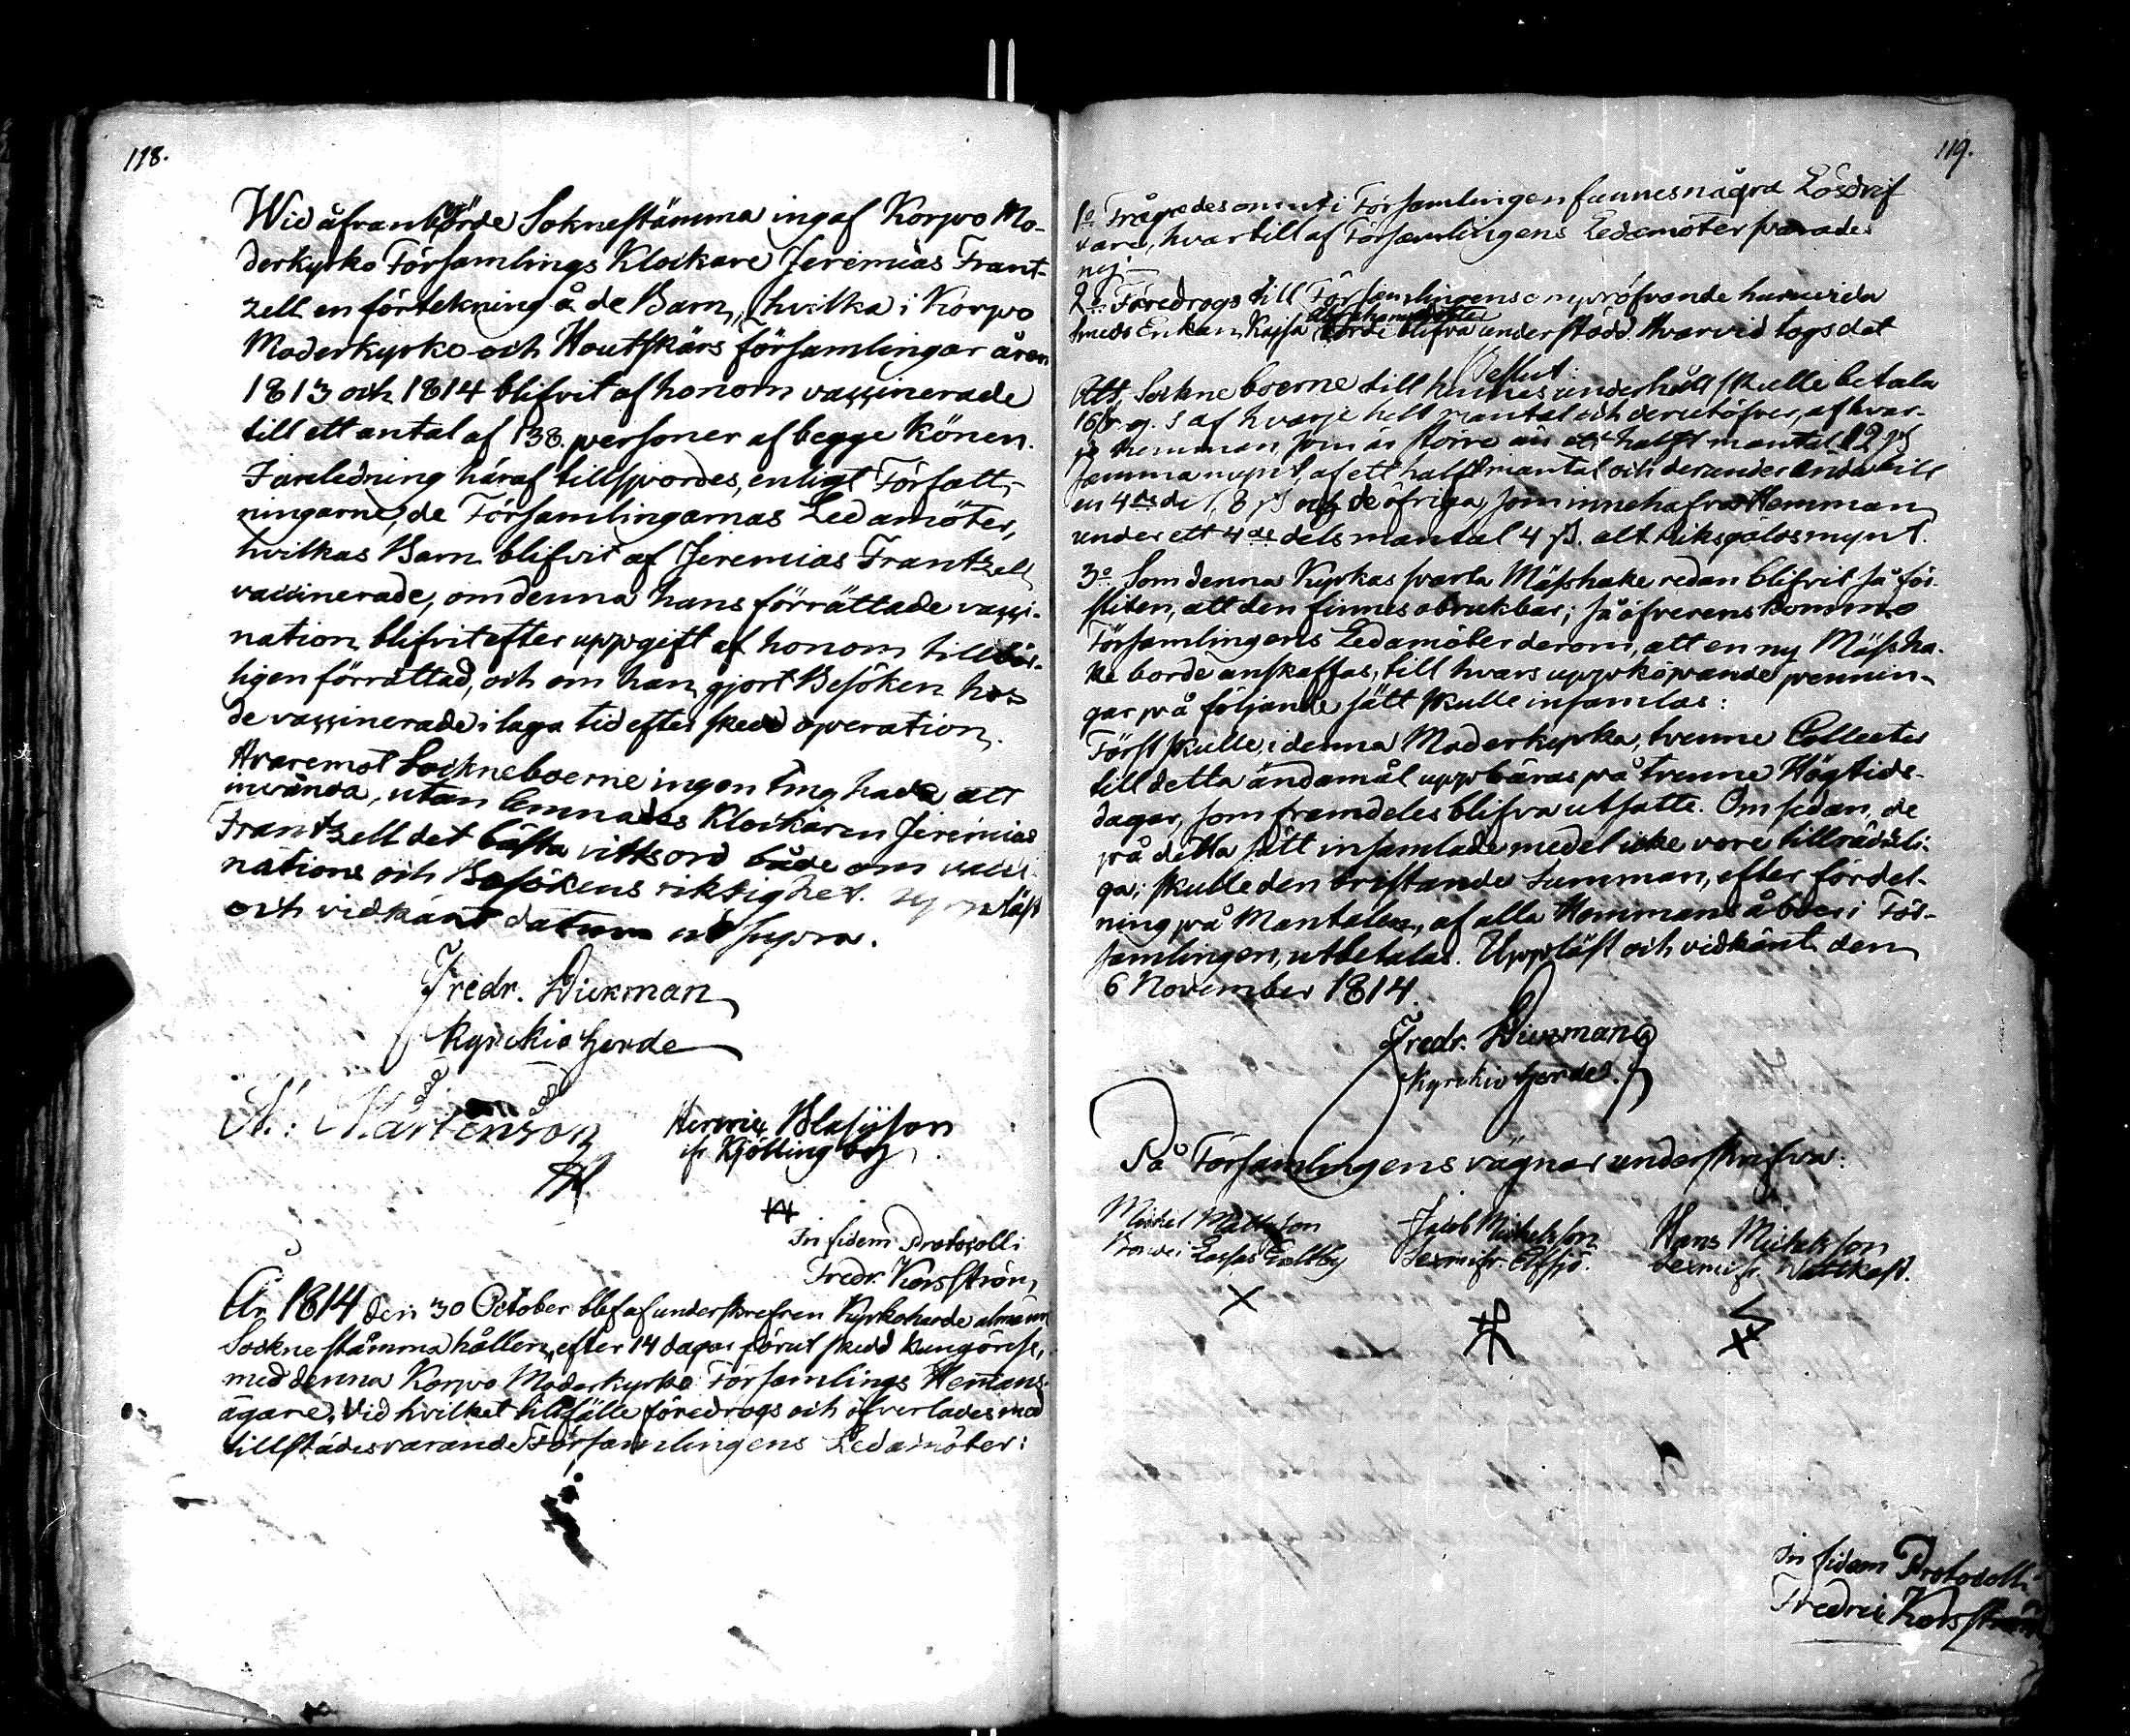 118.
Wid åfvanbörde Soknestämma ingaf Korpo Mo-
derkyrko Församlings Klockare Jeremias Frant-
zell en förtekning å de Barn, hvilka i Korpo
Moderkyrko och Houtskärs församlingar åren
1813 och 1814 blifvit af honom vaccinerade
till ett antal af 138. personer af begge Könen.
I anledning häraf tillspordes, enligt Författ-
ningarne, de Församlingarnas Ledamöter,
hvilkas Barn blifvit af Jeremias Frantzell
vaccinerade, om denna hans förrättade vacci-
nation blifvit efter uppgift af honom tillbör-
ligen förrättad, och om han gjort Besöken hos
de vaccinerade i laga tid efter skedd operation.
Hvaremot Sockneboerne ingen ting hade att
invända, utan lemnades Klockaren Jeremias
Frantzell det bästa vittsord både om vacci-
nations och Besökens riktighet. Uppläst
och vidkänt datum ut supra.
Fredr. Dickman
Kyrckio herde
A: Mårtenson
Henric Blasiison
ifr Kjöllingby
In fidem Protocolli
Fredr. Korsström
År 1814 den 30 October blef af underskrefven Kyrkoherde almänn
Sockne stämma hållen, efter 14 dagar förut skedd kungörelse,
med denna Korpo Moderkyrko Församlings Hemmans-
ägare, vid hvilket tillfälle föredrogs och öfverlades med
tillstädesvarande Församlingens Ledamöter:
119.
1o Frågades om uti Församlingen funnes några Lösdrif
vare, hvartill af Församlingens Ledamöter svarades
nej.
2o Föredrogs till Församlingens ompröfvande huruvida
smeds Enkan Kajsa Abrahamsdotter borde blifva understödd. Hvarvid togs det
Beslut:
Att, Sockneboerne till hennes underhåll skulle betala
16 ß rg. s af hvarje helt mantal och derutöfver, af hvar-
je hemman som är större än ett halft mantal 12 ß
samma mynt, af ett halft mantal och derunder ända till
en 4de del, 8 ß och de öfriga som innehafva Hemman
under ett 4de dels mantal 4 ß. alt Riksgäldsmynt.
3o Som denna Kyrkas svarta Mässhake redan blifvit så för-
sliten, att den finnes obrukbar; så öfverenskommo
Församlingens Ledamöter derom, att en ny Mässha-
ke borde anskaffas, till hvars uppköpande pennin-
gar på följande sätt skulle insamlas:
Först skulle, i denna Moderkyrka, tvenne Collecter
till detta ändamål uppbäras på tvenne Högtids-
dagar, som framdeles blifva utsatte. Om sedan, de
på detta sätt insamlade medel icke vore tillräckeli-
ga; skulle den bristande Summan, efter fördel-
ning på Mantalen, af alla Hemmans åboer i För-
samlingen, utbetalas. Uppläst och vidkänt den
6 November 1814.
Fredr. Dickman
Kyrckio herde.
På Församlingens vägnar underskrifva:
Mickel Mattsson
Jacob Mickelsson
Hans Mickelsson
In fidem Protocolli
Fredric Korsström